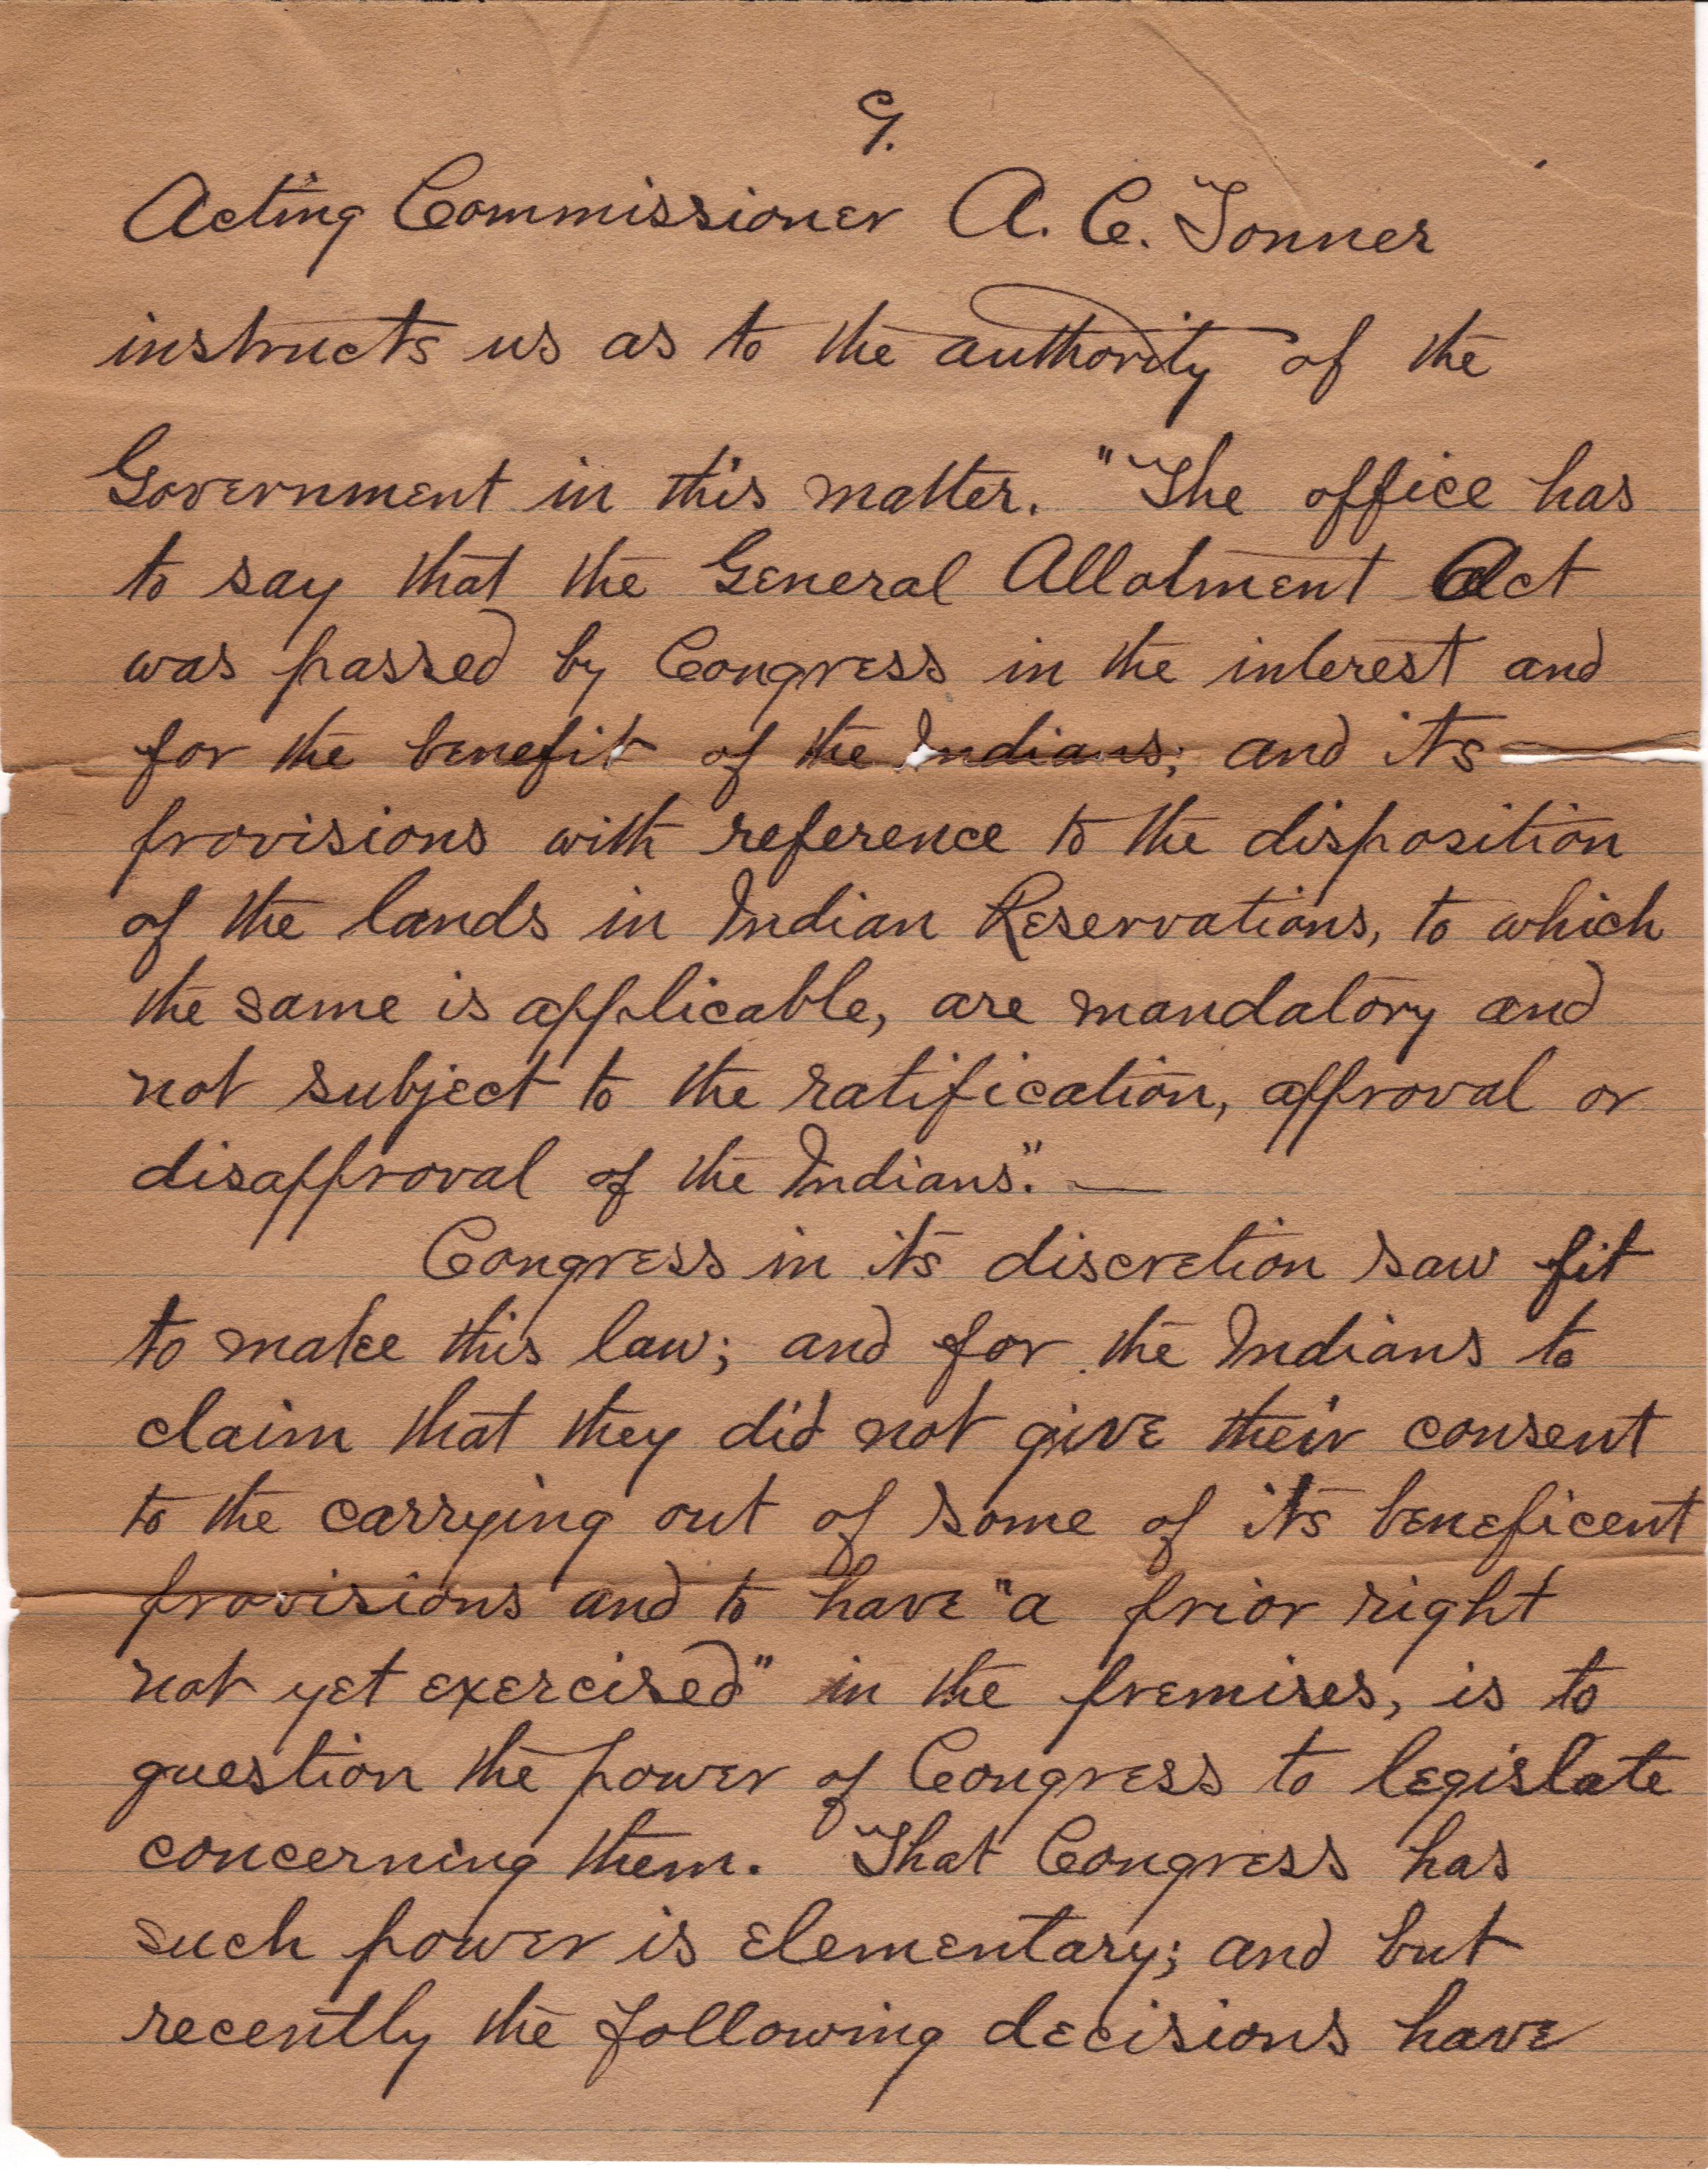 9.
Acting Commissioner A. C. Tonner
instructs us as to the authority of the
Government in this matter. "The office has
to say that the General Allotment Act
was passed by Congress in the interest and
for the benefit of the Indians; and its
provisions with reference to the disposition
of the lands in Indian Reservations, to which
the same is applicable, are mandatory and
not subject to the ratification, approval or
disapproval of the Indians". —
Congress in its discretion saw fit
to make this law; and for the Indians to
claim that they did not give their consent
to the carrying out of some of its beneficent
provisions and to have "a prior right
not yet exercised" in the premises, is to
question the power of Congress to legislate
concerning them. That Congress has
such power is elementary; and but
recently the following decisions have